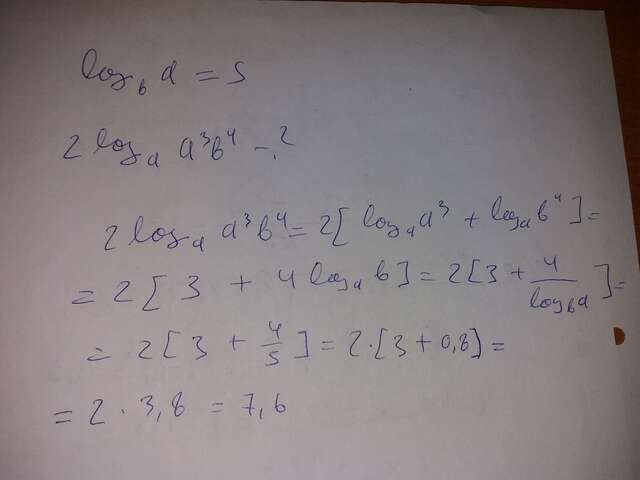 log_b a = 5
2 log_a a³b⁴ - ?
2 log_a a³b⁴ = 2[log_a a³ + log_a b⁴] =
= 2[3 + 4 log_a b] = 2[3 + 4/log_b a] =
= 2[3 + 4/5] = 2·[3 + 0,8] =
= 2 · 3,8 = 7,6